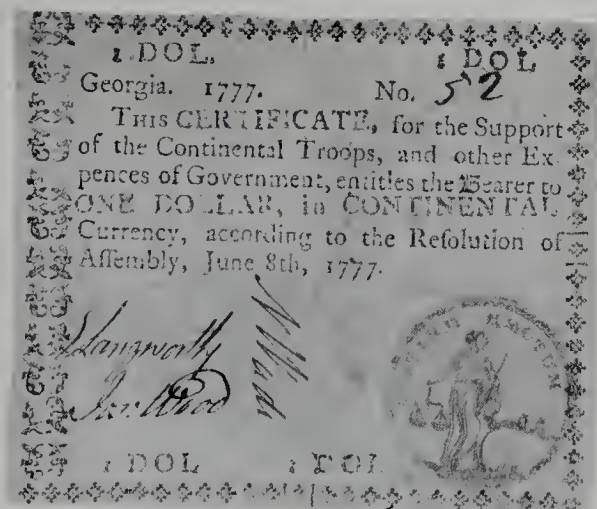 1 DOL. 1 DOL
Georgia. 1777. No. 52
THIS CERTIFICATE, for the Support
of the Continental Troops, and other Ex-
pences of Government, entitles the Bearer to
ONE DOLLAR, in CONTINENTAL
Currency, according to the Reſolution of
Aſſembly, June 8th, 1777.
Langworthy
Wood
1 DOL 1 DOL